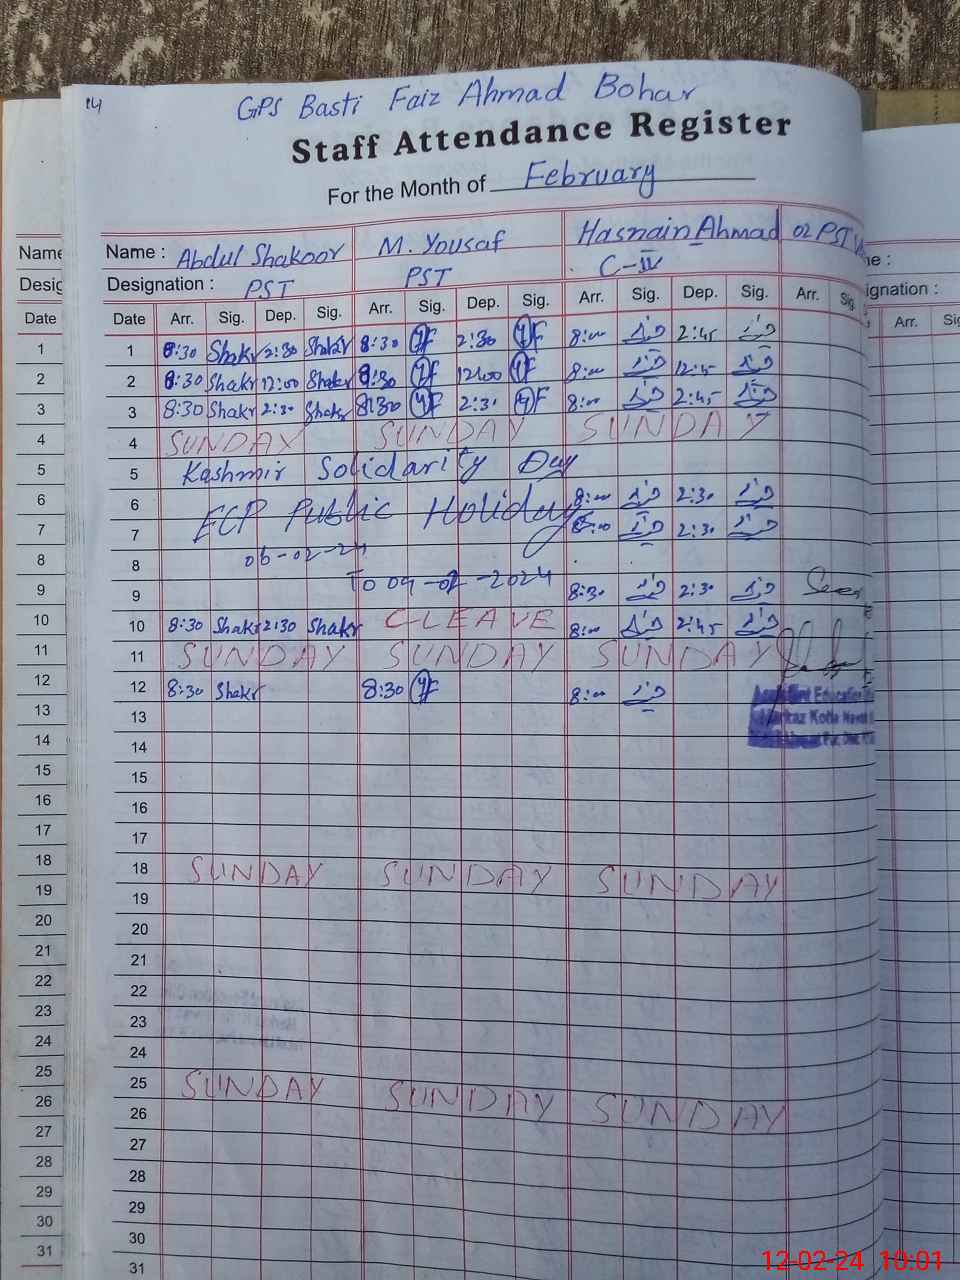 14
GPS Basti Faiz Ahmad Bohar
Staff Attendance Register
For the Month of February
Name : Abdul Shakoor M. Yousaf Hasnain Ahmad 02 PST
Designation : PST PST C-IV
Date Arr. Sig. Dep. Sig. Arr. Sig. Dep. Sig. Arr. Sig. Dep. Sig. Arr. Sig.
1 8:30 Shakr 2:30 Shakr 8:30 YF 2:30 YF 8:00 2:45
2 8:30 Shakr 12:00 Shakr 8:30 YF 12:00 YF 8:00 12:15
3 8:30 Shakr 2:30 Shakr 8:30 YF 2:30 YF 8:00 2:45
4 SUNDAY SUNDAY SUNDAY
5 Kashmir Solidarity Day
6 ECP Public Holiday 8:00 2:30
7 8:00 2:30
8 06-02-24
9 To 09-02-2024 8:30 2:30
10 8:30 Shakr 2:30 Shakr C LEAVE 8:00 2:45
11 SUNDAY SUNDAY SUNDAY
12 8:30 Shakr 8:30 YF 8:00
Assistant Education
Markaz Kotla
13
14
15
16
17
18 SUNDAY SUNDAY SUNDAY
19
20
21
22
23
24
25 SUNDAY SUNDAY SUNDAY
26
27
28
29
30
31
Name
Desig
Date
1
2
3
4
5
6
7
8
9
10
11
12
13
14
15
16
17
18
19
20
21
22
23
24
25
26
27
28
29
30
31
me :
ignation :
Arr. Sig
12-02-24 10:01